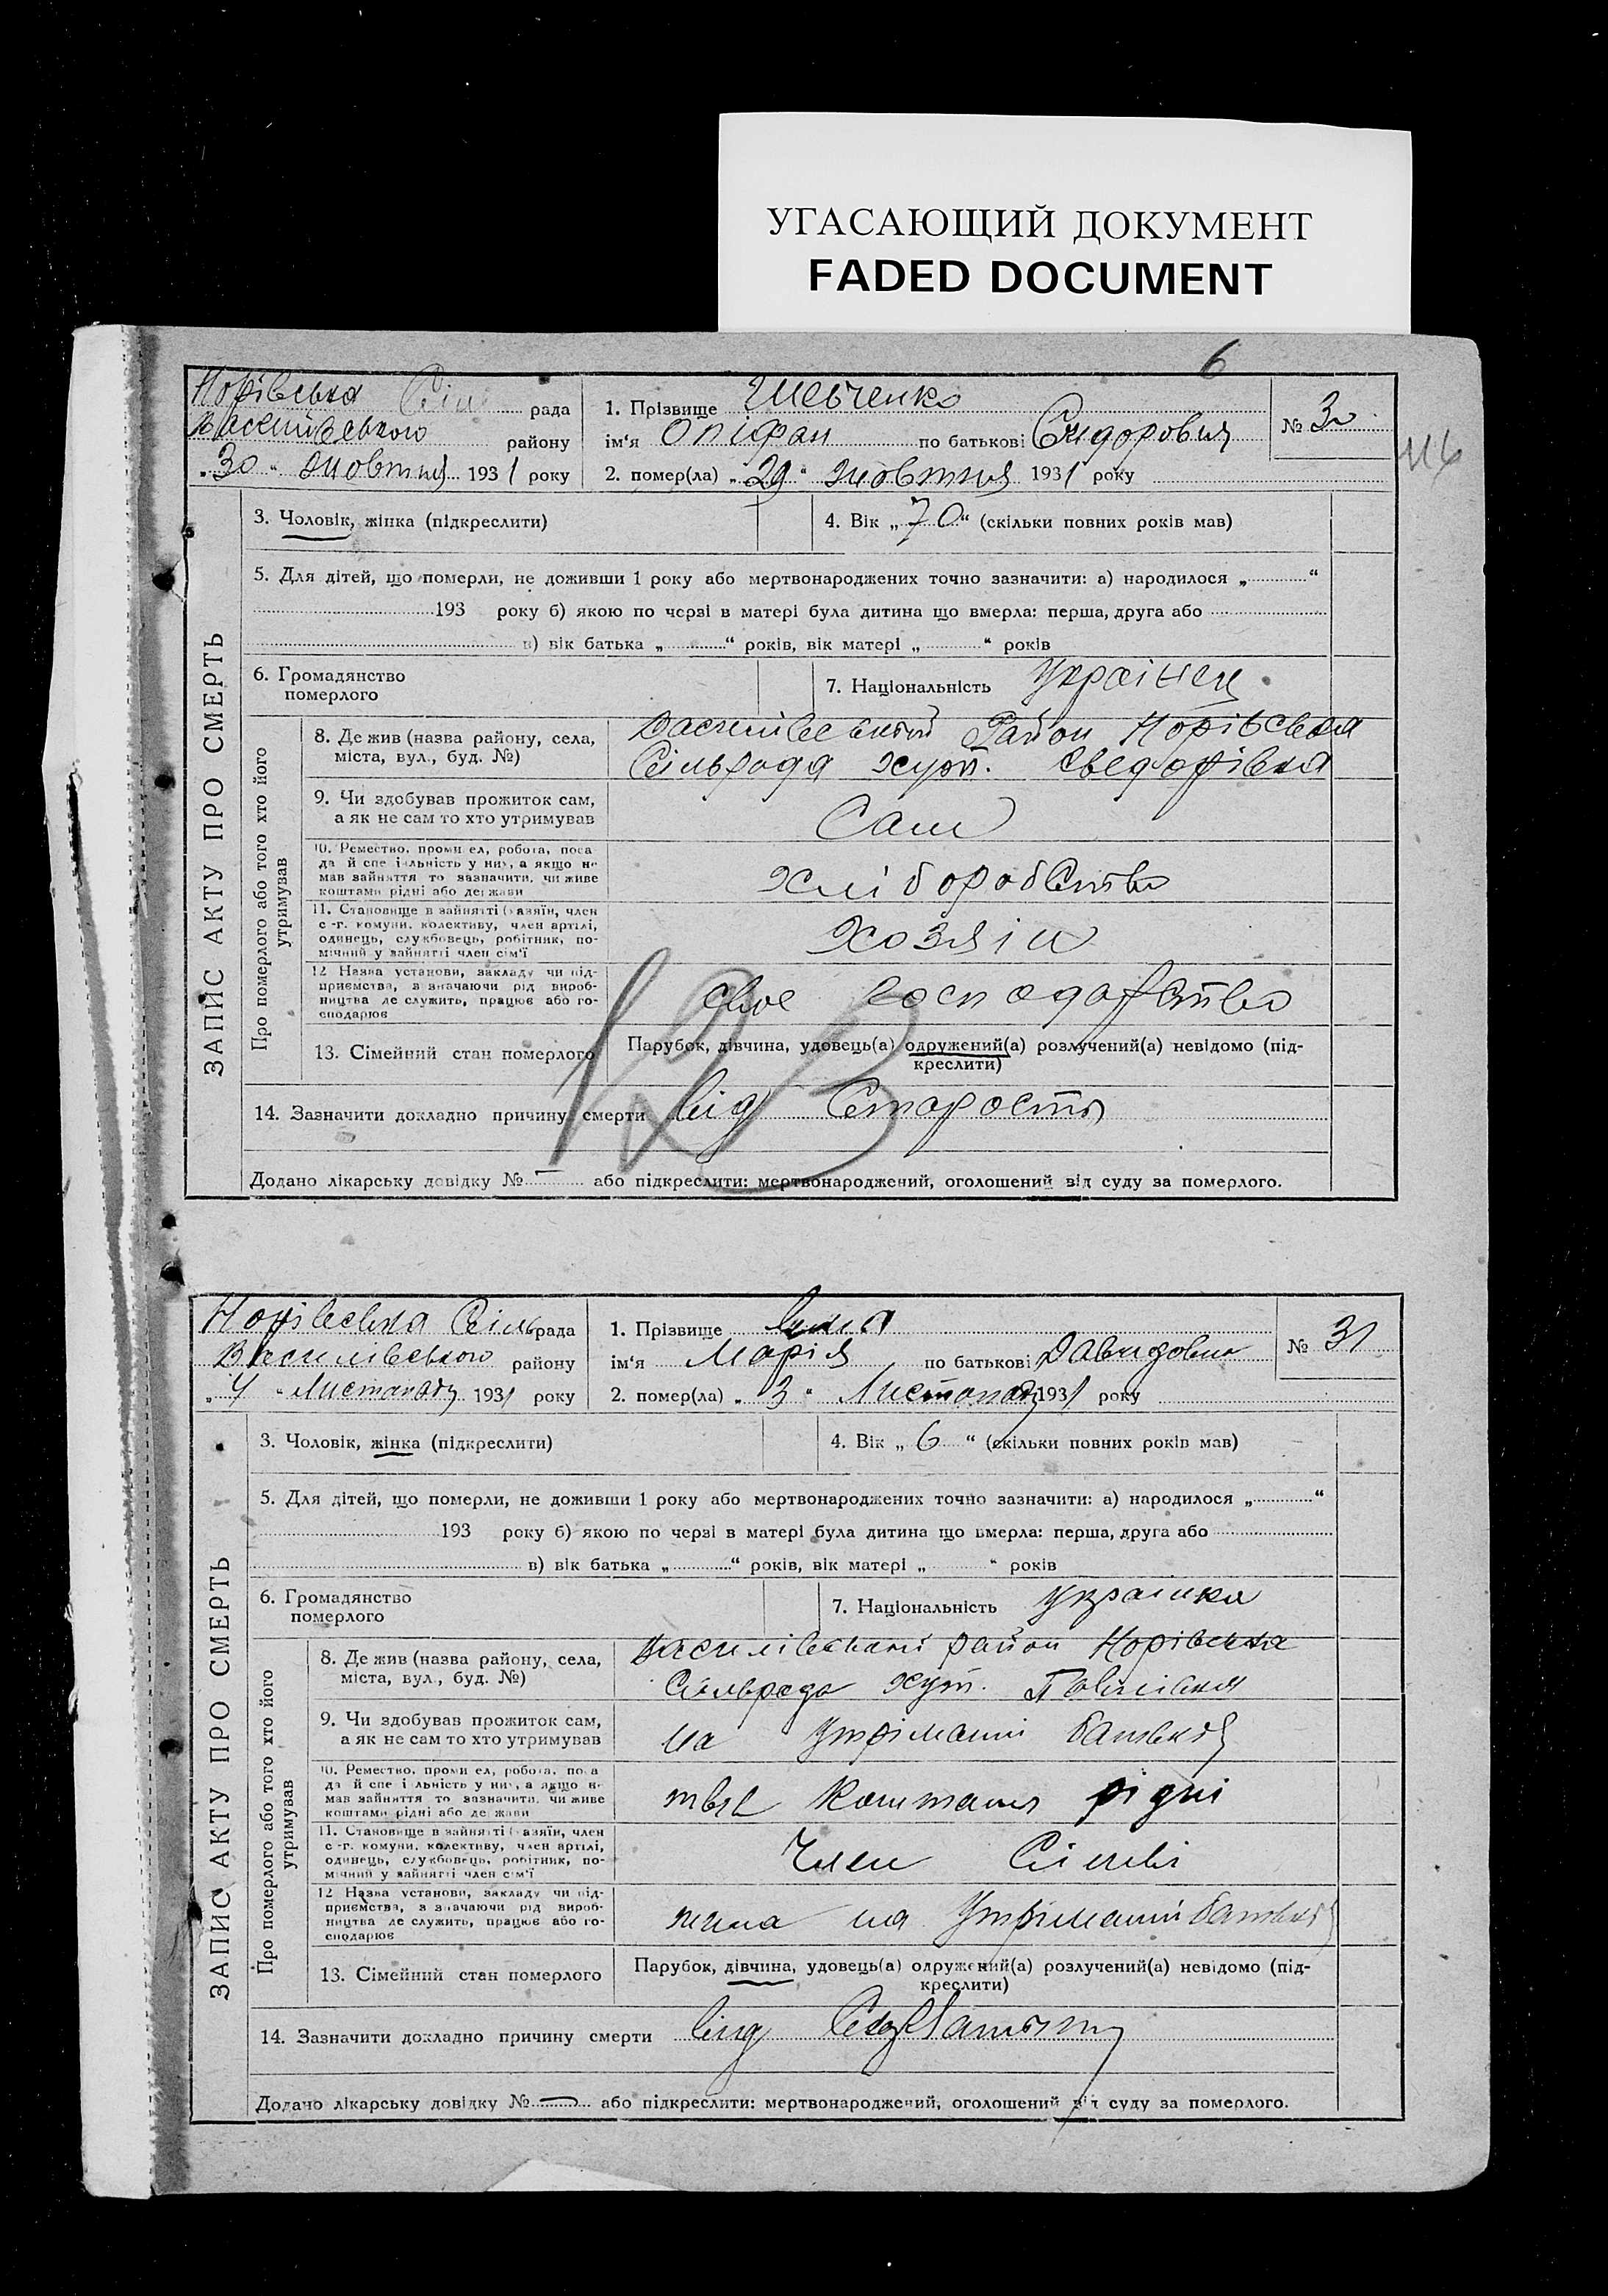 УГАСАЮЩИЙ ДОКУМЕНТ
FADED DOCUMENT
6
Норівська Сіль рада
Василівського району
„30“ жовтня 1931 року
1. Прізвище Шевченко
ім‘я Опіфан по батькові Сидорович
№ 30
116
2. помер(ла) „29“ жовтня 1931 року
3. Чоловік, жінка (підкреслити)
4. Вік „70“ (скільки повних років мав)
5. Для дітей, що померли, не доживши 1 року або мертвонароджених точно зазначити: а) народилося „ “
193 року б) якою по черзі в матері була дитина що вмерла: перша, друга або
в) вік батька „ “ років, вік матері „ “ років
6. Громадянство
померлого
7. Національність Українец
ЗАПИС АКТУ ПРО СМЕРТЬ
Про померлого або того хто його
утримував
8. Де жив (назва району, села,
міста, вул., буд. №)
Василівський Район Норівська
Сільрада хут.
9. Чи здобував прожиток сам,
а як не сам то хто утримував
Сам
10. Ремество, промисел, робота, поса
да й спеціяльність у них, а якщо не
мав зайняття то зазначити, чи живе
коштами рідні або держави
хліборобство
11. Становище в зайнятті (хазяїн, член
с.-г. комуни, колективу, член артілі,
одинець, службовець, робітник, по-
мічний у зайнятті член сім‘ї
Хозяін
12 Назва установи, закладу чи під-
приємства, зазначаючи рід вироб-
ництва де служить, працює або го-
сподарює
своє господарство
13. Сімейний стан померлого
Парубок, дівчина, удовець(а) одружений(а) розлучений(а) невідомо (під-
креслити)
14. Зазначити докладно причину смерти Від Старости
Додано лікарську довідку № — або підкреслити: мертвонароджений, оголошений від суду за померлого.
Норівська Сіль рада
Василівського району
„4“ Листопаду 1931 року
1. Прізвище
ім‘я Марія по батькові Давидовна
№ 31
2. помер(ла) „3“ Листопаду 1931 року
3. Чоловік, жінка (підкреслити)
4. Вік „6“ (скільки повних років мав)
5. Для дітей, що померли, не доживши 1 року або мертвонароджених точно зазначити: а) народилося „ “
193 року б) якою по черзі в матері була дитина що вмерла: перша, друга або
в) вік батька „ “ років, вік матері „ “ років
6. Громадянство
померлого
7. Національність Украінка
ЗАПИС АКТУ ПРО СМЕРТЬ
Про померлого або того хто його
утримував
8. Де жив (назва району, села,
міста, вул., буд. №)
Василівський район Норівська
Сільрада хут. Павлівка
9. Чи здобував прожиток сам,
а як не сам то хто утримував
на Утріманні батьків
10. Ремество, промисел, робота, поса
да й спеціяльність у них, а якщо не
мав зайняття то зазначити, чи живе
коштами рідні або держави
коштами рідні
11. Становище в зайнятті (хазяїн, член
с.-г. комуни, колективу, член артілі,
одинець, службовець, робітник, по-
мічний у зайнятті член сім‘ї
Член Сімьі
12 Назва установи, закладу чи під-
приємства, зазначаючи рід вироб-
ництва де служить, працює або го-
сподарює
жила на Утріманні батьків
13. Сімейний стан померлого
Парубок, дівчина, удовець(а) одружений(а) розлучений(а) невідомо (під-
креслити)
14. Зазначити докладно причину смерти Від
Додано лікарську довідку № — або підкреслити: мертвонароджений, оголошений від суду за померлого.